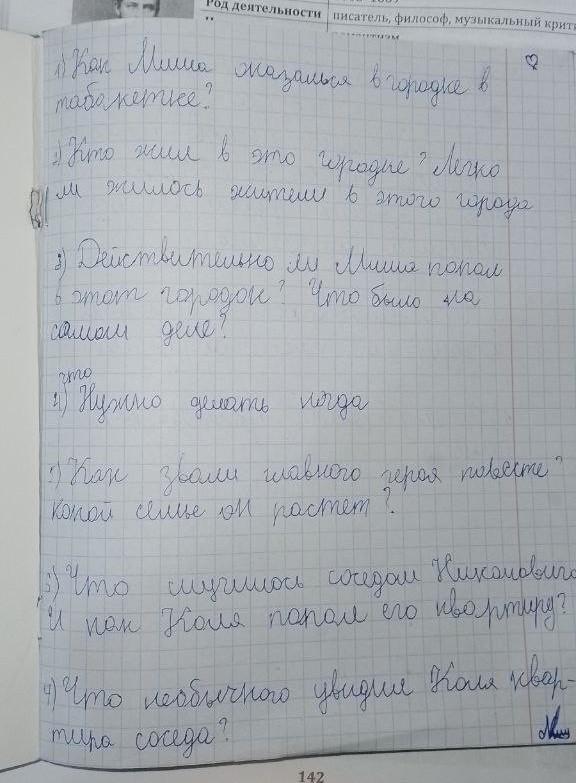 Род деятельности писатель, философ, музыкальный крити
романтизм
1) Как Миша оказалься в городке в
табакетке?
2) Кто жил в это городке? Легко
ли жилось жители в этого города
3) Действительно ли Миша попал
в этот городок? Что было на
самом деле?
что
4) Нужно делать когда
1) Как звали главного героя повесте?
какой семье он растет?
3) Что случилось соседом Николового
И как Коля попал его квартиру?
4) Что необычного увидил Коля квар-
тира соседа?
142